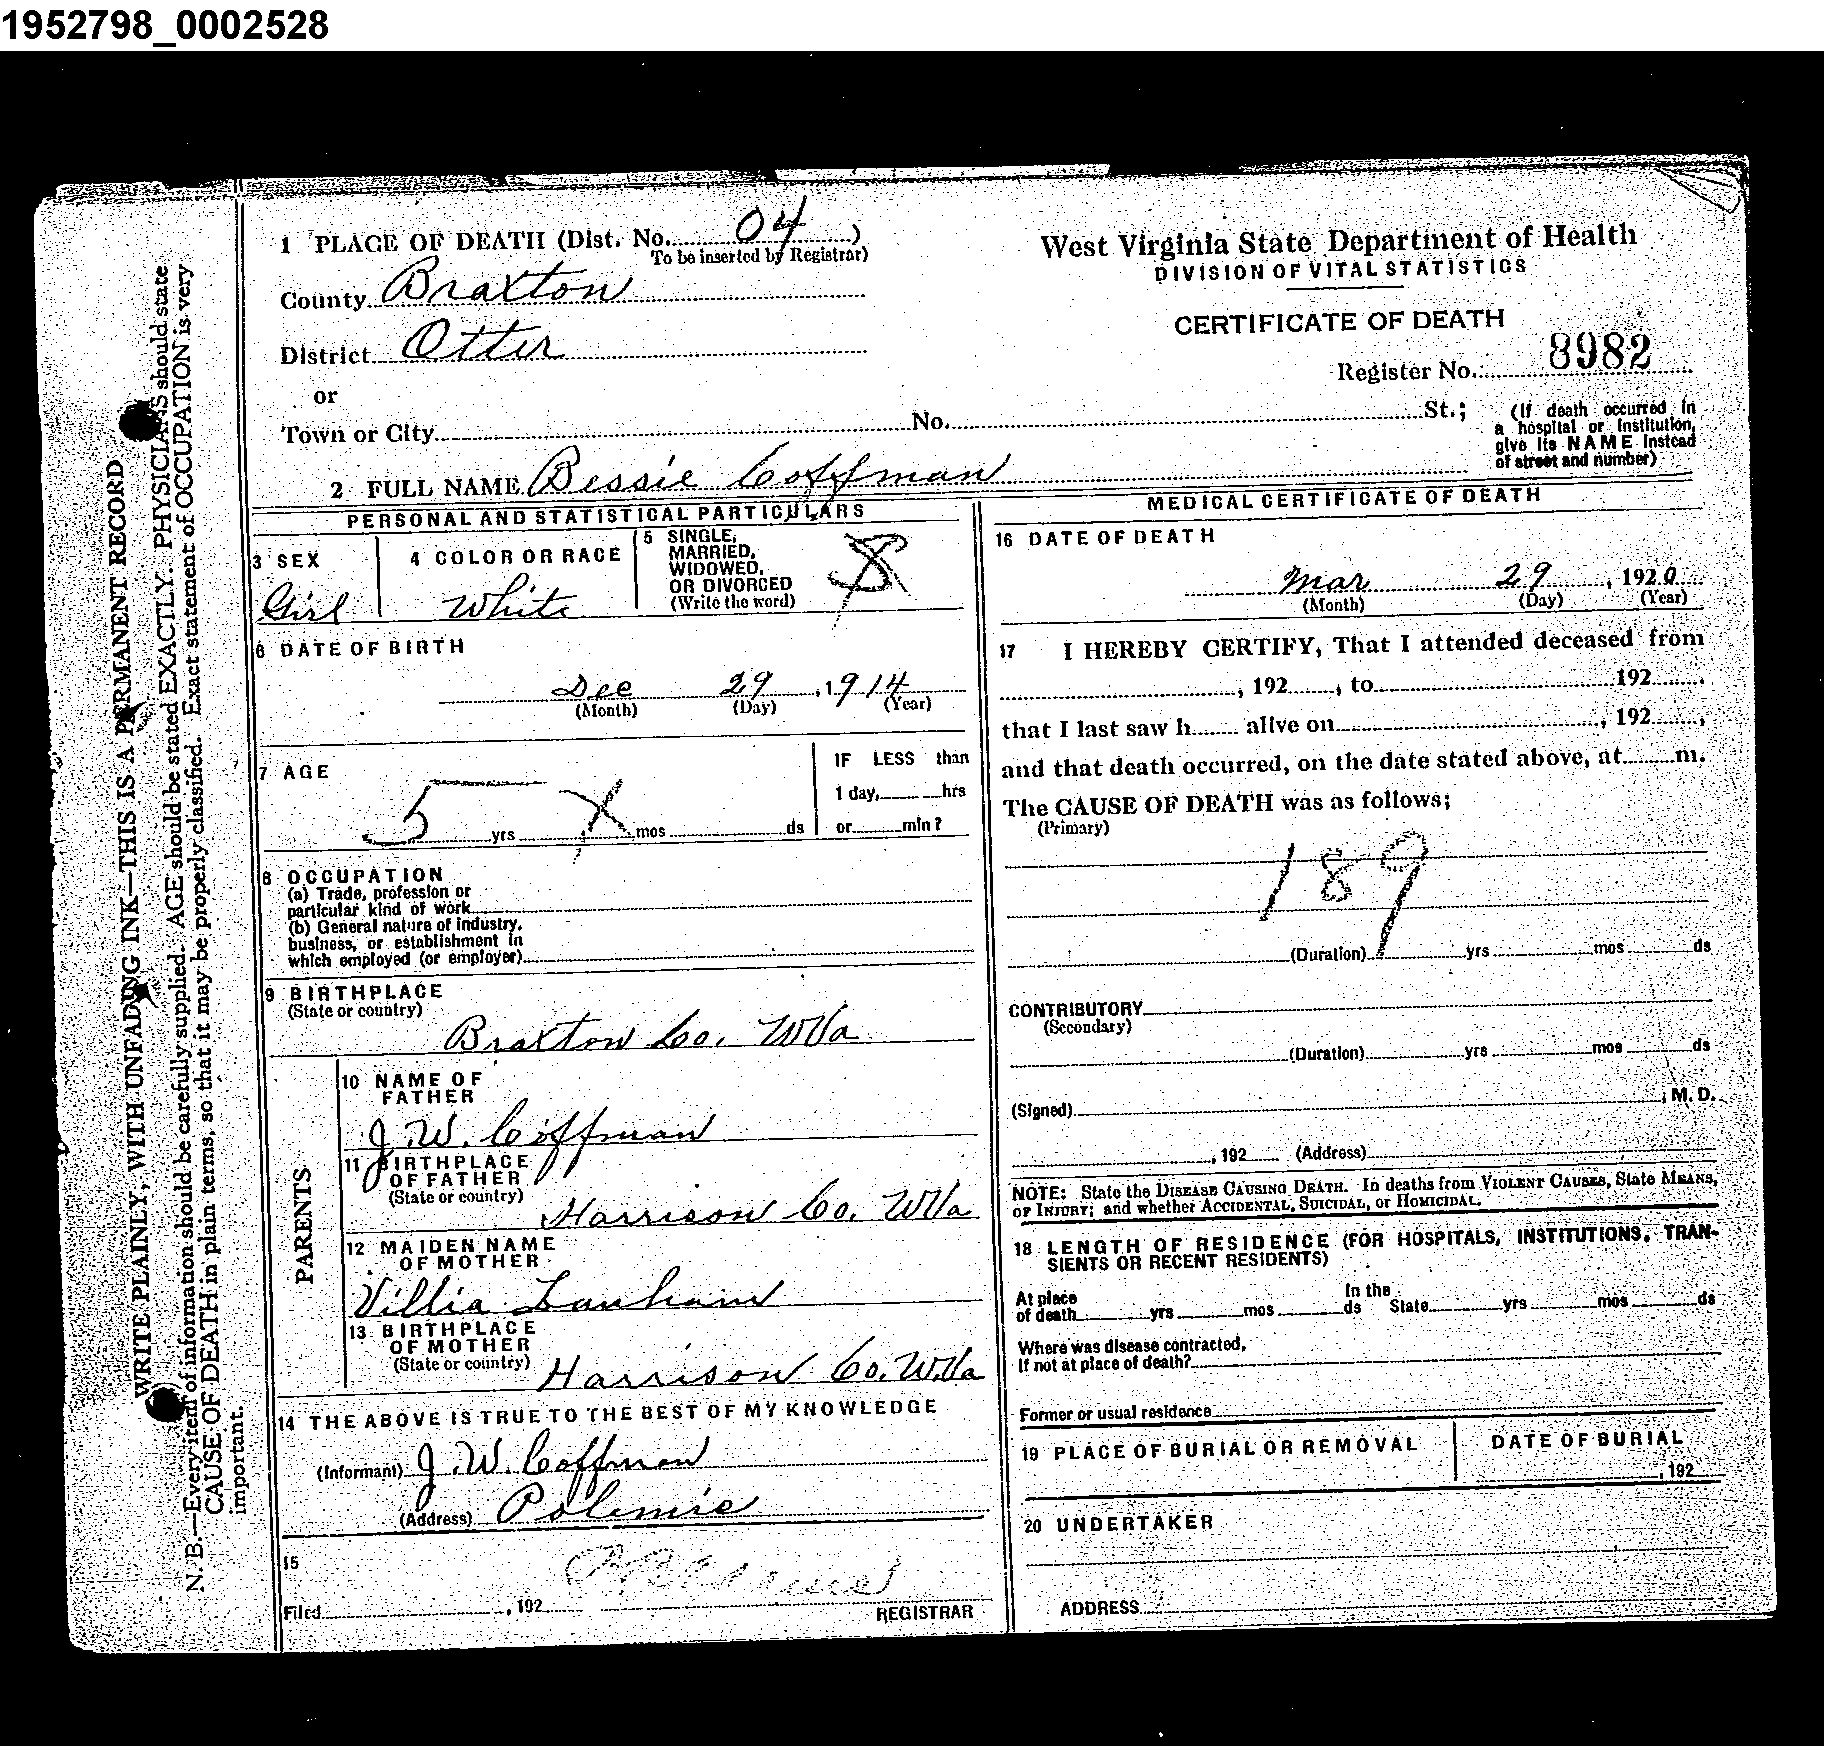 1952798_0002528
1 PLACE OF DEATH (Dist. No. 04 )
To be inserted by Registrar)
County Braxton
District Otter
or
Town or City No. St.;
(If death occurred in
a hospital or institution,
give its NAME instead
of street and number)
West Virginia State Department of Health
DIVISION OF VITAL STATISTICS
CERTIFICATE OF DEATH
Register No. 8982
2 FULL NAME Bessie Coffman
PERSONAL AND STATISTICAL PARTICULARS
3 SEX
Girl
4 COLOR OR RACE
White
5 SINGLE,
MARRIED,
WIDOWED,
OR DIVORCED
(Write the word)
S
6 DATE OF BIRTH
Dec 29, 1914
(Month) (Day) (Year)
7 AGE
5 yrs X mos ds
IF LESS than
1 day, hrs
or min?
8 OCCUPATION
(a) Trade, profession or
particular kind of work
(b) General nature of industry,
business, or establishment in
which employed (or employer)
9 BIRTHPLACE
(State or country)
Braxton Co. WVa
PARENTS
10 NAME OF
FATHER
J. W. Coffman
11 BIRTHPLACE
OF FATHER
(State or country)
Harrison Co. WVa
12 MAIDEN NAME
OF MOTHER
Villia Lanham
13 BIRTHPLACE
OF MOTHER
(State or country)
Harrison Co. W.Va
14 THE ABOVE IS TRUE TO THE BEST OF MY KNOWLEDGE
(Informant) J. W. Coffman
(Address) Polemic
15
Filed , 192
REGISTRAR
MEDICAL CERTIFICATE OF DEATH
16 DATE OF DEATH
Mar 29, 1920
(Month) (Day) (Year)
17 I HEREBY CERTIFY, That I attended deceased from
, 192 , to 192 .
that I last saw h alive on , 192 ,
and that death occurred, on the date stated above, at m.
The CAUSE OF DEATH was as follows;
(Primary)
189
(Duration) yrs mos ds
CONTRIBUTORY
(Secondary)
(Duration) yrs mos ds
(Signed) , M. D.
, 192 (Address)
NOTE: State the DISEASE CAUSING DEATH. In deaths from VIOLENT CAUSES, State MEANS,
OF INJURY; and whether ACCIDENTAL, SUICIDAL, or HOMICIDAL.
18 LENGTH OF RESIDENCE (FOR HOSPITALS, INSTITUTIONS, TRAN-
SIENTS OR RECENT RESIDENTS)
At place
of death yrs mos ds
In the
State yrs mos ds
Where was disease contracted,
If not at place of death?
Former or usual residence
19 PLACE OF BURIAL OR REMOVAL
DATE OF BURIAL
, 192
20 UNDERTAKER
ADDRESS
WRITE PLAINLY, WITH UNFADING INK—THIS IS A PERMANENT RECORD
N. B.—Every item of information should be carefully supplied. AGE should be stated EXACTLY. PHYSICIANS should state
CAUSE OF DEATH in plain terms, so that it may be properly classified. Exact statement of OCCUPATION is very
important.